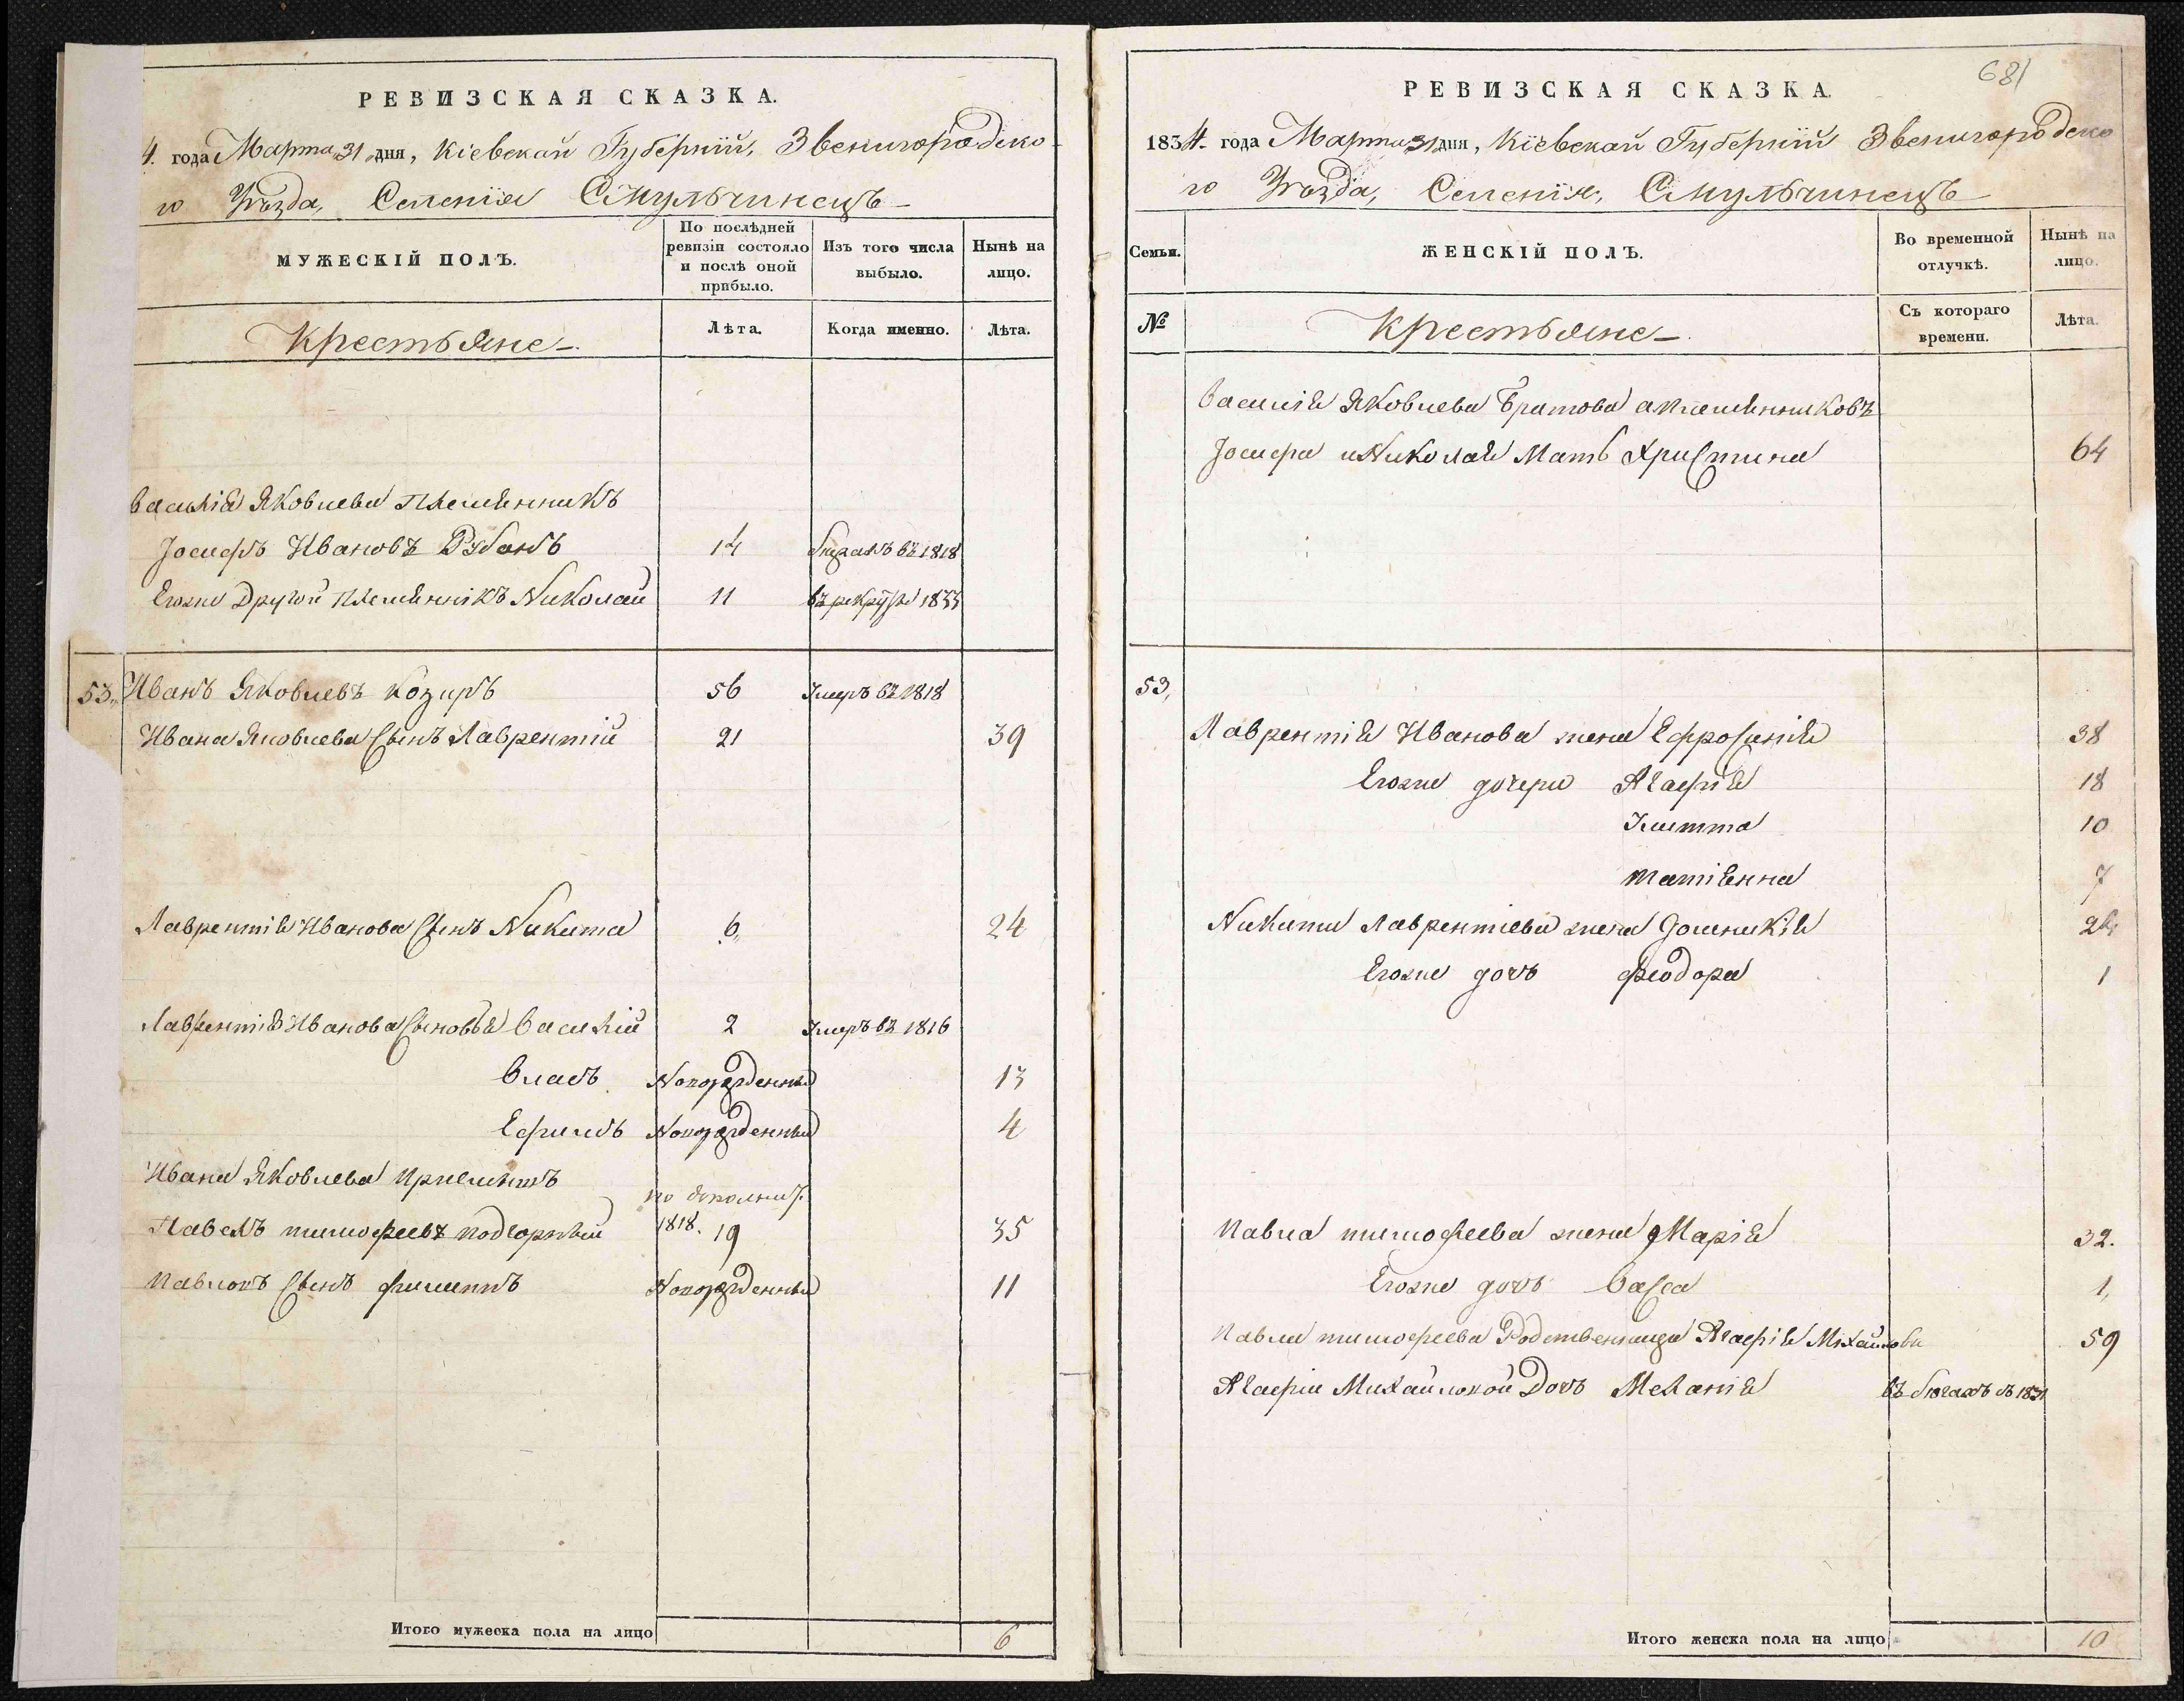 РЕВИЗСКАЯ СКАЗКА.
4. года Марта 31 дня, Кіевской Губерніи, Звенигородско-
го Уѣзда, Селенія Смульчинецъ
МУЖЕСКІЙ ПОЛЪ.
По послѣдней ревизіи состояло и послѣ оной прибыло.
Изъ того числа выбыло.
Нынѣ на лицо.
Крестьяне
Лѣта.
Когда именно.
Лѣта.
Василія Яковлева племянникъ
Іосифъ Ивановъ Рубанъ 14 въ 1818
Егоже другой племянникъ Николай 11 въ рекруты 1833
53. Иванъ Яковлевъ Козиръ 56 Умеръ въ 1818
Ивана Яковлева сынъ Лаврентій 21 39
Лаврентія Иванова сынъ Никита 6. 24
Лаврентія Иванова сыновья Василій 2 Умеръ въ 1816
Власъ Новорожденный 13
Ефимъ Новорожденный 4
Ивана Яковлева
по дополнит.
Павелъ тимофеевъ подгорный 1818. 19 35
Павловъ сынъ филиппъ Новорожденный 11
Итого мужеска пола на лицо 6
681
РЕВИЗСКАЯ СКАЗКА.
1834. года Марта 31 дня, Кіевской Губерніи Звенигородско
го Уѣзда, Селенія, Смульчинецъ
Семьи.
ЖЕНСКІЙ ПОЛЪ.
Во временной отлучкѣ.
Нынѣ на лицо.
№
Крестьяне
Съ котораго времени.
Лѣта.
Василія Яковлева братова а племянниковъ
Іосифа и Николая Мать Христина 64
53,
Лаврентія Иванова жена Ефросинія 38
Егоже дочери Агафія 18
Улитта 10
татіянна 7
Никиты Лаврентіева жена Домникія 24
Егоже дочь феодора 1
Павла тимофеева жена Марія 32.
Егоже дочь Васса 1,
Павла тимофеева Родственница Агафія Михайлова 59
Агафіи Михайловой Дочь Меланія въ бѣгахъ съ 1831
Итого женска пола на лицо 10